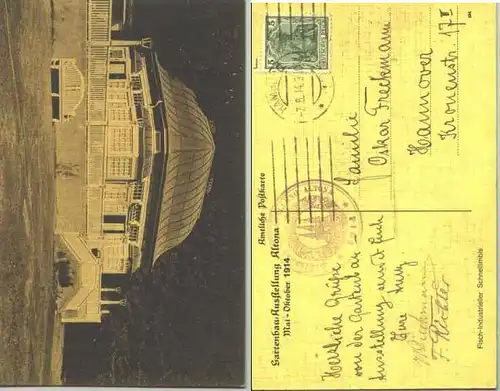 Amtliche Postkarte
Gartenbau-Ausstellung Altona
Mai-Oktober 1914
Familie
Oskar Freckmann
Hannover
Kronenstr. 17 II
Herzliche Grüße
von der Gartenbau-
Ausstellung sendet Euch
Eure
ALTONA
7.6.14
5
Fisch-Industrieller Schnellimbis